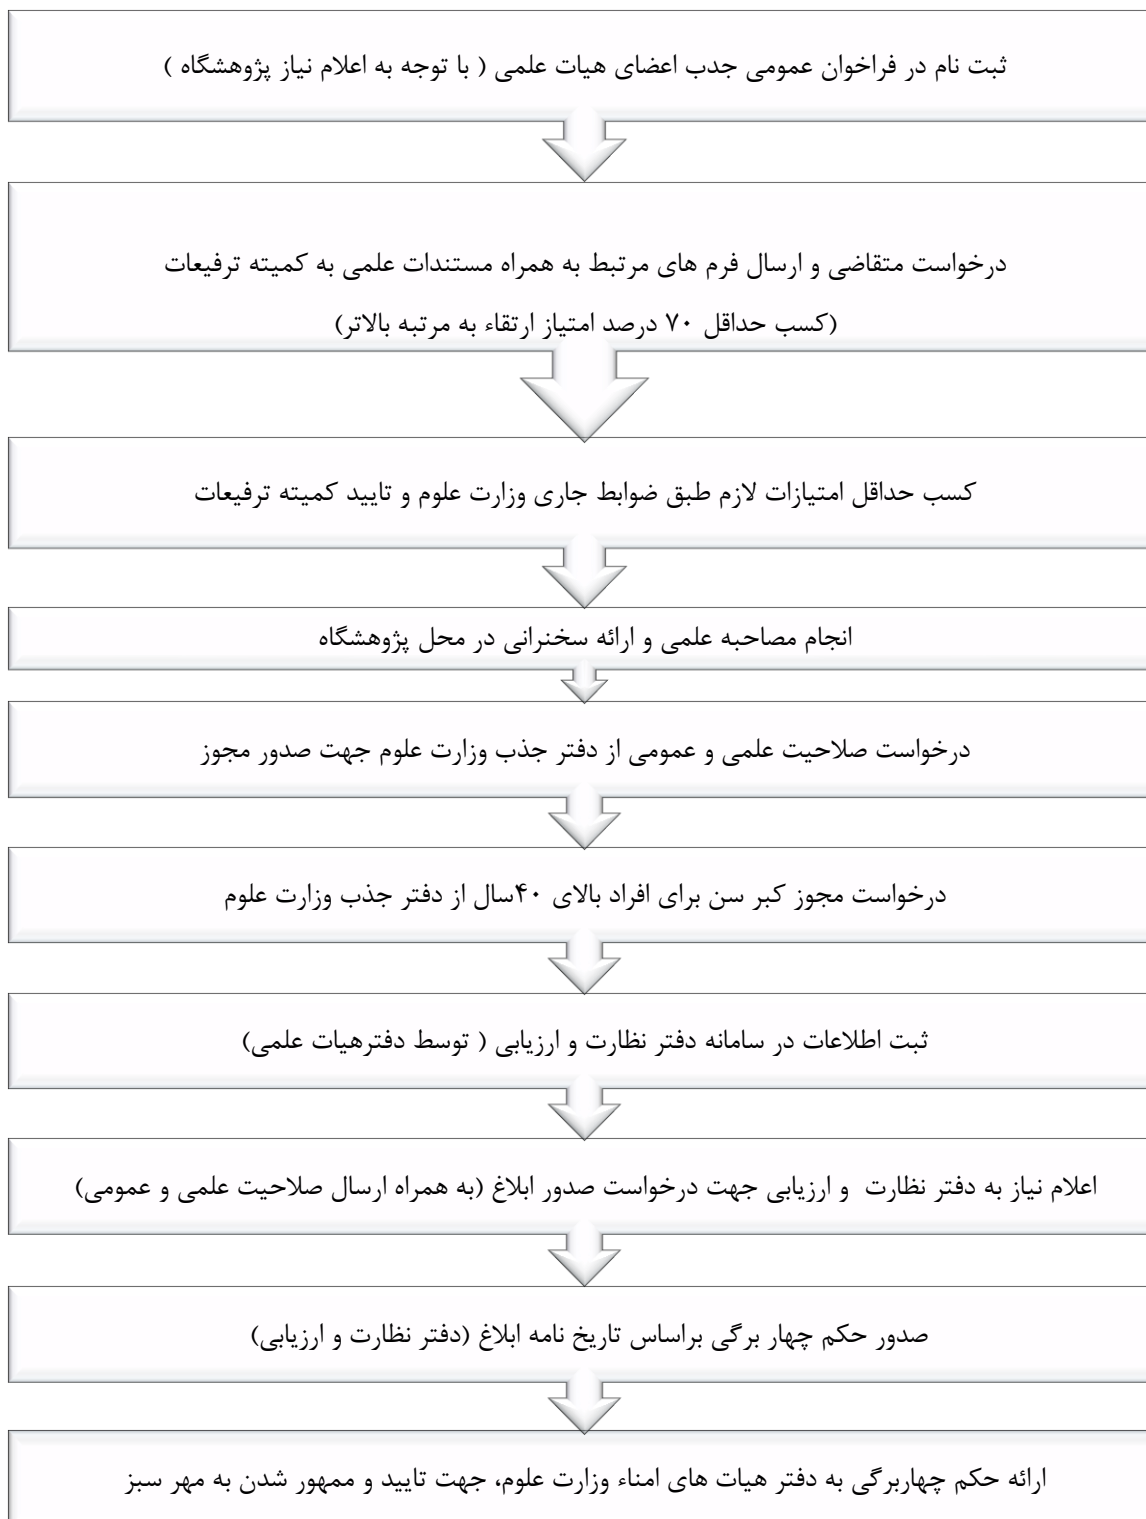 ثبت نام در فراخوان عمومی جدب اعضای هیات علمی ( با توجه به اعلام نیاز پژوهشگاه )
درخواست متقاضی و ارسال فرم های مرتبط به همراه مستندات علمی به کمیته ترفیعات
(کسب حداقل ۷۰ درصد امتیاز ارتقاء به مرتبه بالاتر)
کسب حداقل امتیازات لازم طبق ضوابط جاری وزارت علوم و تایید کمیته ترفیعات
انجام مصاحبه علمی و ارائه سخنرانی در محل پژوهشگاه
درخواست صلاحیت علمی و عمومی از دفتر جذب وزارت علوم جهت صدور مجوز
درخواست مجوز کبر سن برای افراد بالای ۴۰سال از دفتر جذب وزارت علوم
ثبت اطلاعات در سامانه دفتر نظارت و ارزیابی ( توسط دفترهیات علمی)
اعلام نیاز به دفتر نظارت و ارزیابی جهت درخواست صدور ابلاغ (به همراه ارسال صلاحیت علمی و عمومی)
صدور حکم چهار برگی براساس تاریخ نامه ابلاغ (دفتر نظارت و ارزیابی)
ارائه حکم چهاربرگی به دفتر هیات های امناء وزارت علوم، جهت تایید و ممهور شدن به مهر سبز